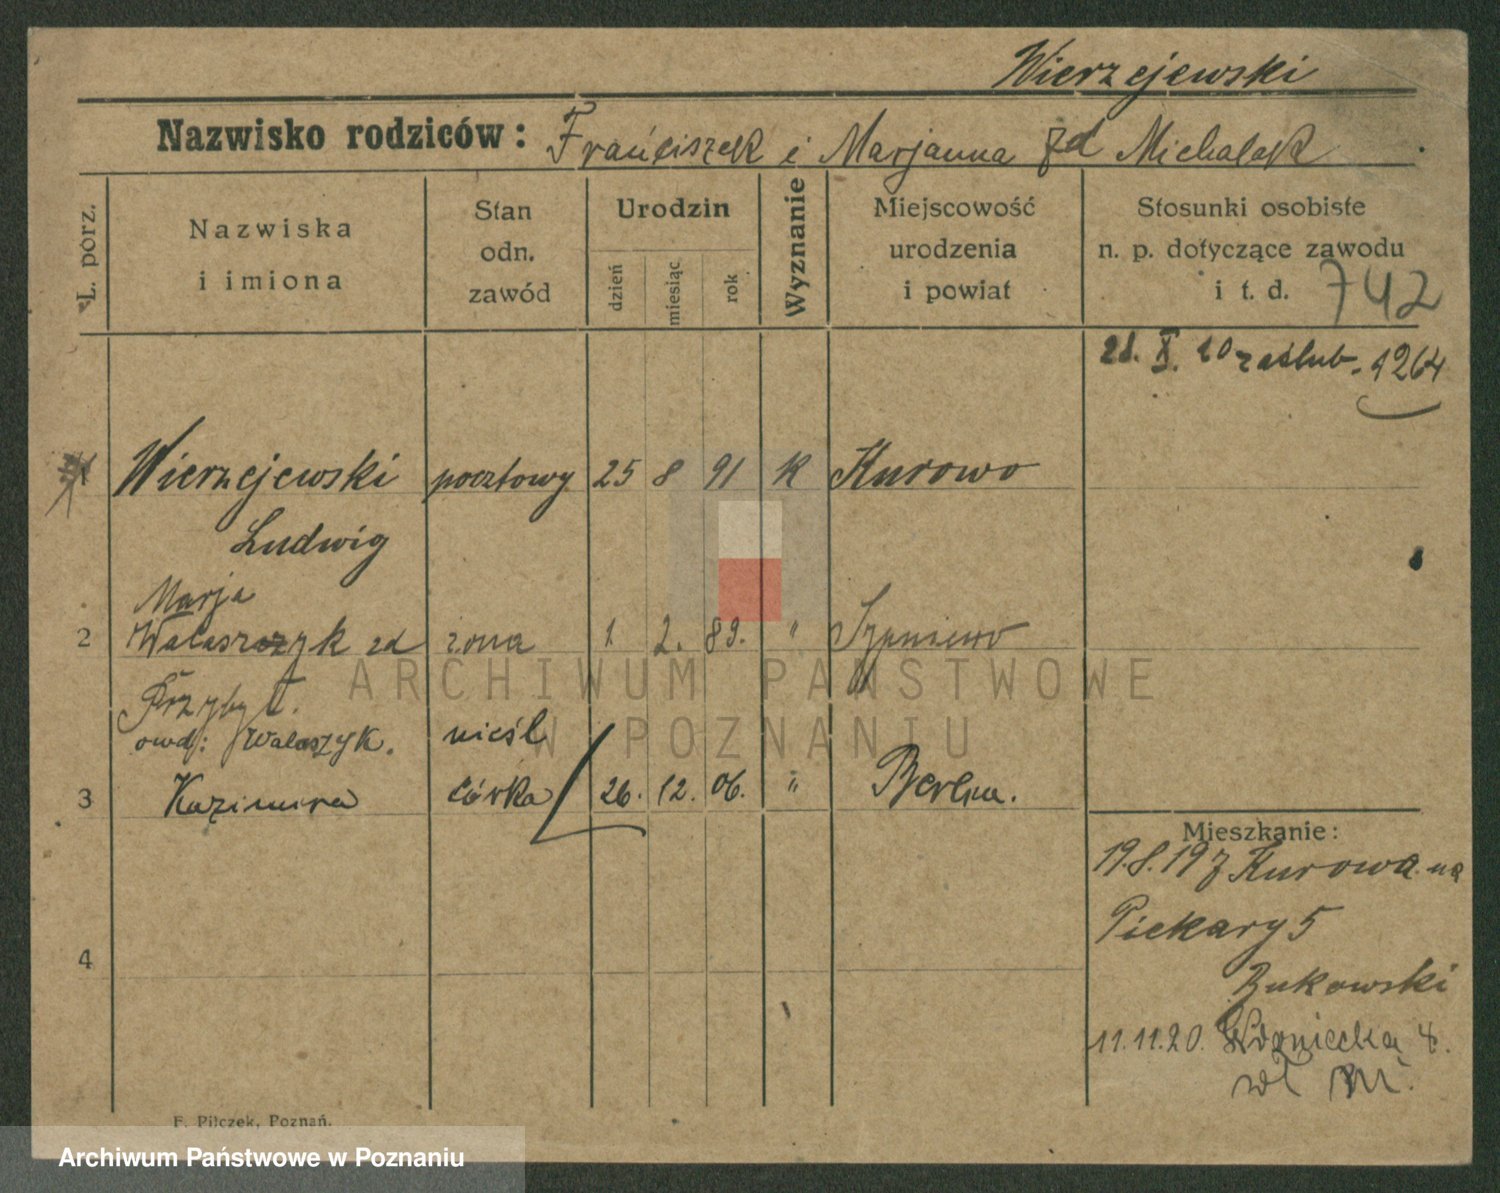 Wierzejewski
Nazwisko rodziców: Franciszek i Marjanna zd Michalak
L. porz.
Nazwiska
i imiona
Stan
odn.
zawód
Urodzin
dzień
miesiąc
rok
Wyznanie
Miejscowość
urodzenia
i powiat
Stosunki osobiste
n. p. dotyczące zawodu
i t. d. 742
21. X. 20 zaślub. 1264
1 Wierzejewski pocztowy 25 8 91 k Kurowo
Ludwig
Marja
2 Walaszczyk zd żona 1 2. 89. " 
Przybył.
owd: Walaszyk. nieśl
3 Kazimira córka 26. 12. 06. " Berlin.
Mieszkanie:
19.8.19 z Kurowa na
Piekary 5
Bukowski
11.11.20. 8.
4
F. Pilczek, Poznań.
ARCHIWUM PAŃSTWOWE
W POZNANIU
Archiwum Państwowe w Poznaniu